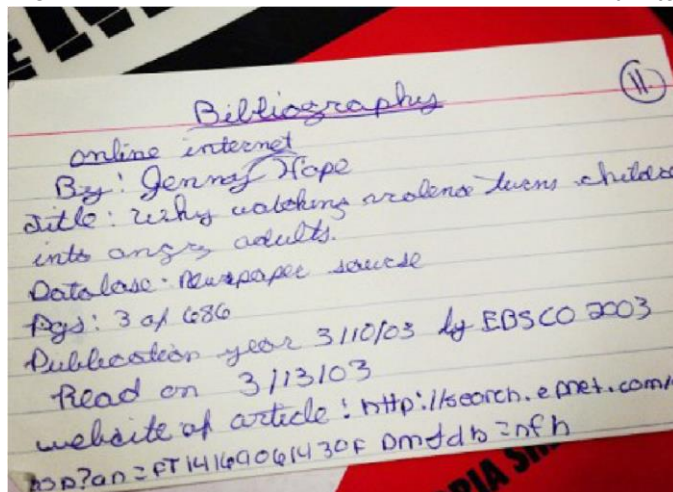 11
Bibliography
online internet
By: Jenny Hope
Title: Why watching violence turns children
into angry adults.
Database: Newspaper source
Pgs: 3 of 686
Publication year 3/10/03 by EBSCO 2003
Read on 3/13/03
website of article: http://search.epnet.com/
asp?an=